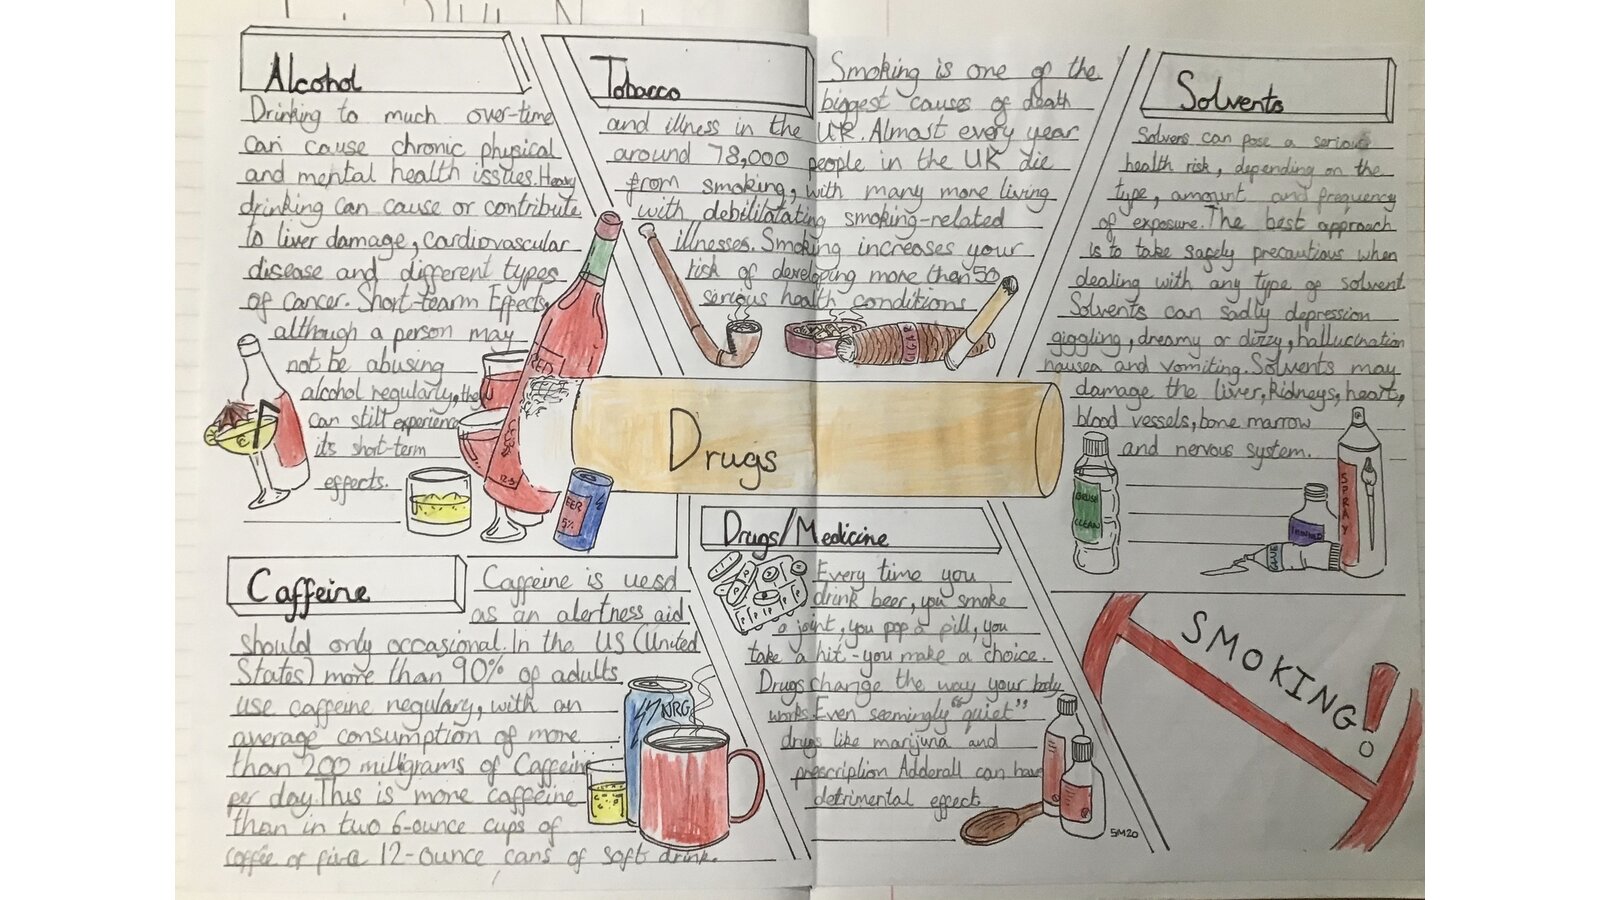 Alcohol
Drinking to much over-time
can cause chronic physical
and mental health issues. Heavy
drinking can cause or contribute
to liver damage, cardiovascular
disease and different types
of cancer. Short-tearm Effects,
although a person may
not be abusing
alcohol regularly, they
can still experience
it's short-term
effects.
Tobacco
Smoking is one of the
biggest causes of death
and illness in the UK. Almost every year
around 78,000 people in the UK die
from smoking, with many more living
with debilitatating smoking-related
illnesses. Smoking increases your
risk of developing more than 50
serious health conditions
Solvents
Solvers can pose a serious
health risk, depending on the
type, amount and frequency
of exposure. The best approach
is to take safely precautious when
dealing with any type of solvent
Solvents can sadly depression
giggling, dreamy or dizzy, hallucination
nausea and vomiting. Solvents may
damage the liver, kidneys, heart,
blood vessels, bone marrow
and nervous system.
Drugs
RED
12.5
BEER
5%
CIGAR
CLEAN
SPRAY
GLUE
Caffeine
Caffeine is uesd
as an alertness aid
should only occasional. In the US (United
States) more than 90% of adults
use caffeine regulary, with an
average consumption of more
than 200 milligrams of Caffeine
per day. This is more caffeine
than in two 6-ounce cups of
coffee or five 12-ounce cans of soft drink.
NRG
Drugs/Medicine
Every time you
drink beer, you smoke
a joint, you pop a pill, you
take a hit - you make a choice.
Drugs change the way your body
works. Even seemingly "quiet"
drugs like marijuna and
prescription Adderall can have
detrimental effect
SM20
SMOKING!